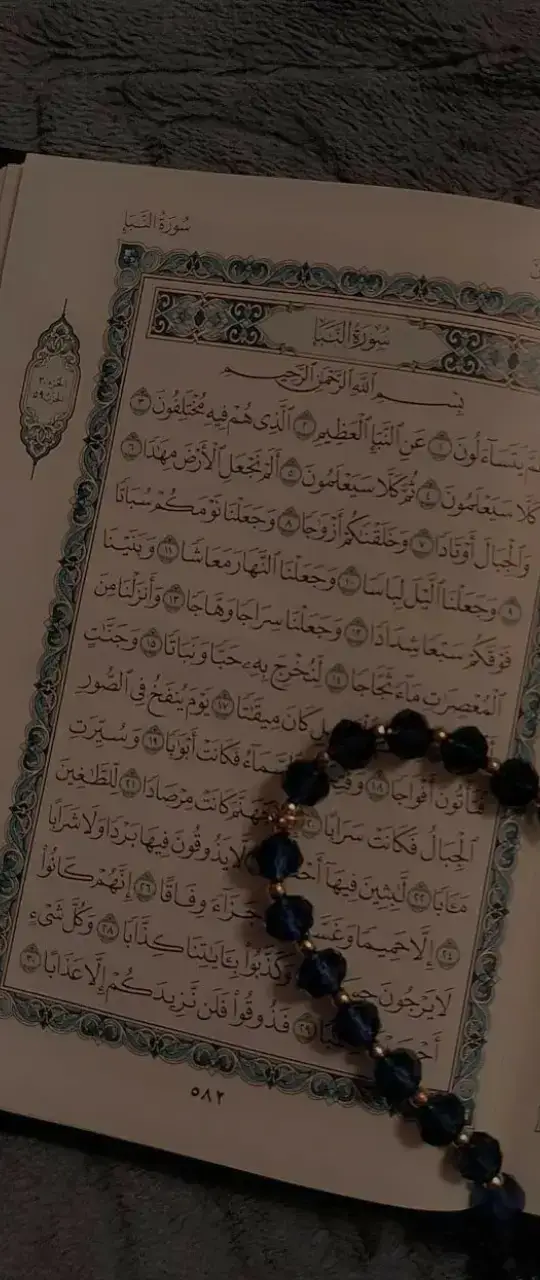 سُورَةُ النَّبَإِ
سُورَةُ النَّبَإِ
بِسْمِ ٱللَّهِ ٱلرَّحْمَٰنِ ٱلرَّحِيمِ
الجزء ٣٠
الحزب ٥٩
يَتَسَآءَلُونَ ١ عَنِ ٱلنَّبَإِ ٱلْعَظِيمِ ٢ ٱلَّذِى هُمْ فِيهِ مُخْتَلِفُونَ ٣
كَلَّا سَيَعْلَمُونَ ٤ ثُمَّ كَلَّا سَيَعْلَمُونَ ٥ أَلَمْ نَجْعَلِ ٱلْأَرْضَ مِهَٰدًا ٦
وَٱلْجِبَالَ أَوْتَادًا ٧ وَخَلَقْنَٰكُمْ أَزْوَٰجًا ٨ وَجَعَلْنَا نَوْمَكُمْ سُبَاتًا
٩ وَجَعَلْنَا ٱلَّيْلَ لِبَاسًا ١٠ وَجَعَلْنَا ٱلنَّهَارَ مَعَاشًا ١١ وَبَنَيْنَا
فَوْقَكُمْ سَبْعًا شِدَادًا ١٢ وَجَعَلْنَا سِرَاجًا وَهَّاجًا ١٣ وَأَنزَلْنَا مِنَ
ٱلْمُعْصِرَٰتِ مَآءً ثَجَّاجًا ١٤ لِّنُخْرِجَ بِهِۦ حَبًّا وَنَبَاتًا ١٥ وَجَنَّٰتٍ
كَانَ مِيقَٰتًا ١٧ يَوْمَ يُنفَخُ فِى ٱلصُّورِ
فَتَأْتُونَ أَفْوَاجًا ١٨ ٱلسَّمَآءُ فَكَانَتْ أَبْوَٰبًا ١٩ وَسُيِّرَتِ
ٱلْجِبَالُ فَكَانَتْ سَرَابًا ٢٠ جَهَنَّمَ كَانَتْ مِرْصَادًا ٢١ لِّلطَّٰغِينَ
مَـَٔابًا ٢٢ لَّٰبِثِينَ فِيهَآ لَّا يَذُوقُونَ فِيهَا بَرْدًا وَلَا شَرَابًا
٢٤ إِلَّا حَمِيمًا جَزَآءً وِفَاقًا ٢٦ إِنَّهُمْ كَانُوا۟
لَا يَرْجُونَ وَكَذَّبُوا۟ بِـَٔايَٰتِنَا كِذَّابًا ٢٨ وَكُلَّ شَىْءٍ
٢٩ فَذُوقُوا۟ فَلَن نَّزِيدَكُمْ إِلَّا عَذَابًا ٣٠
٥٨٢